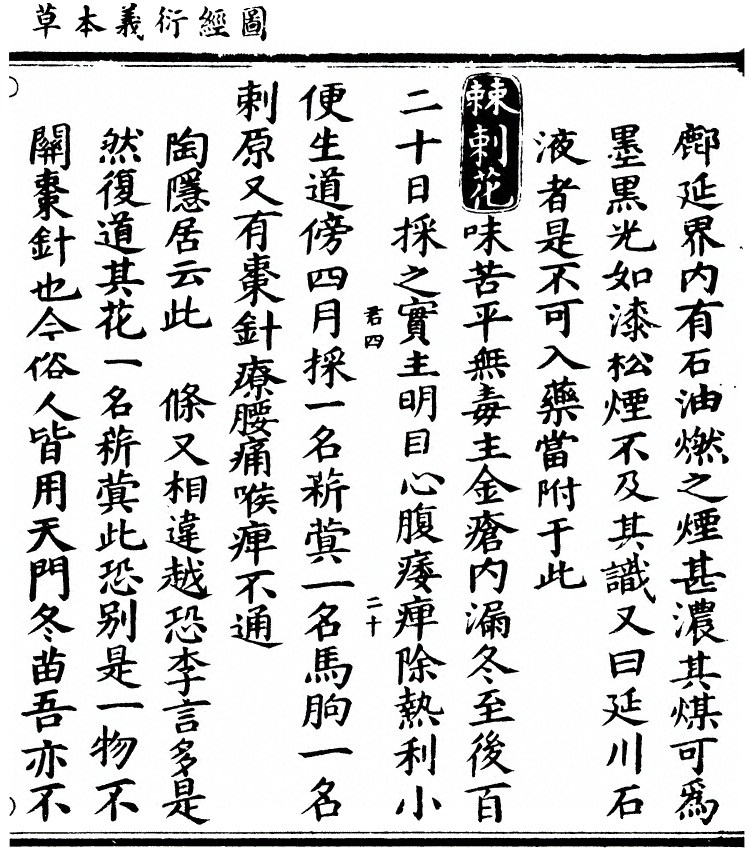 圖經衍義本草
鄜延界内有石油燃之煙甚濃其煤可爲
墨黒光如漆松煙不及其識又曰延川石
液者是不可入藥當附于此
棘刺花味苦平無毒主金瘡内漏冬至後百
二十日採之實主明目心腹痿痺除熱利小
君四 二十
便生道傍四月採一名菥蓂一名馬朐一名
刺原又有棗針療腰痛喉痺不通
陶隱居云此 條又相違越恐李言多是
然復道其花一名菥蓂此恐别是一物不
關棗針也今俗人皆用天門冬苗吾亦不